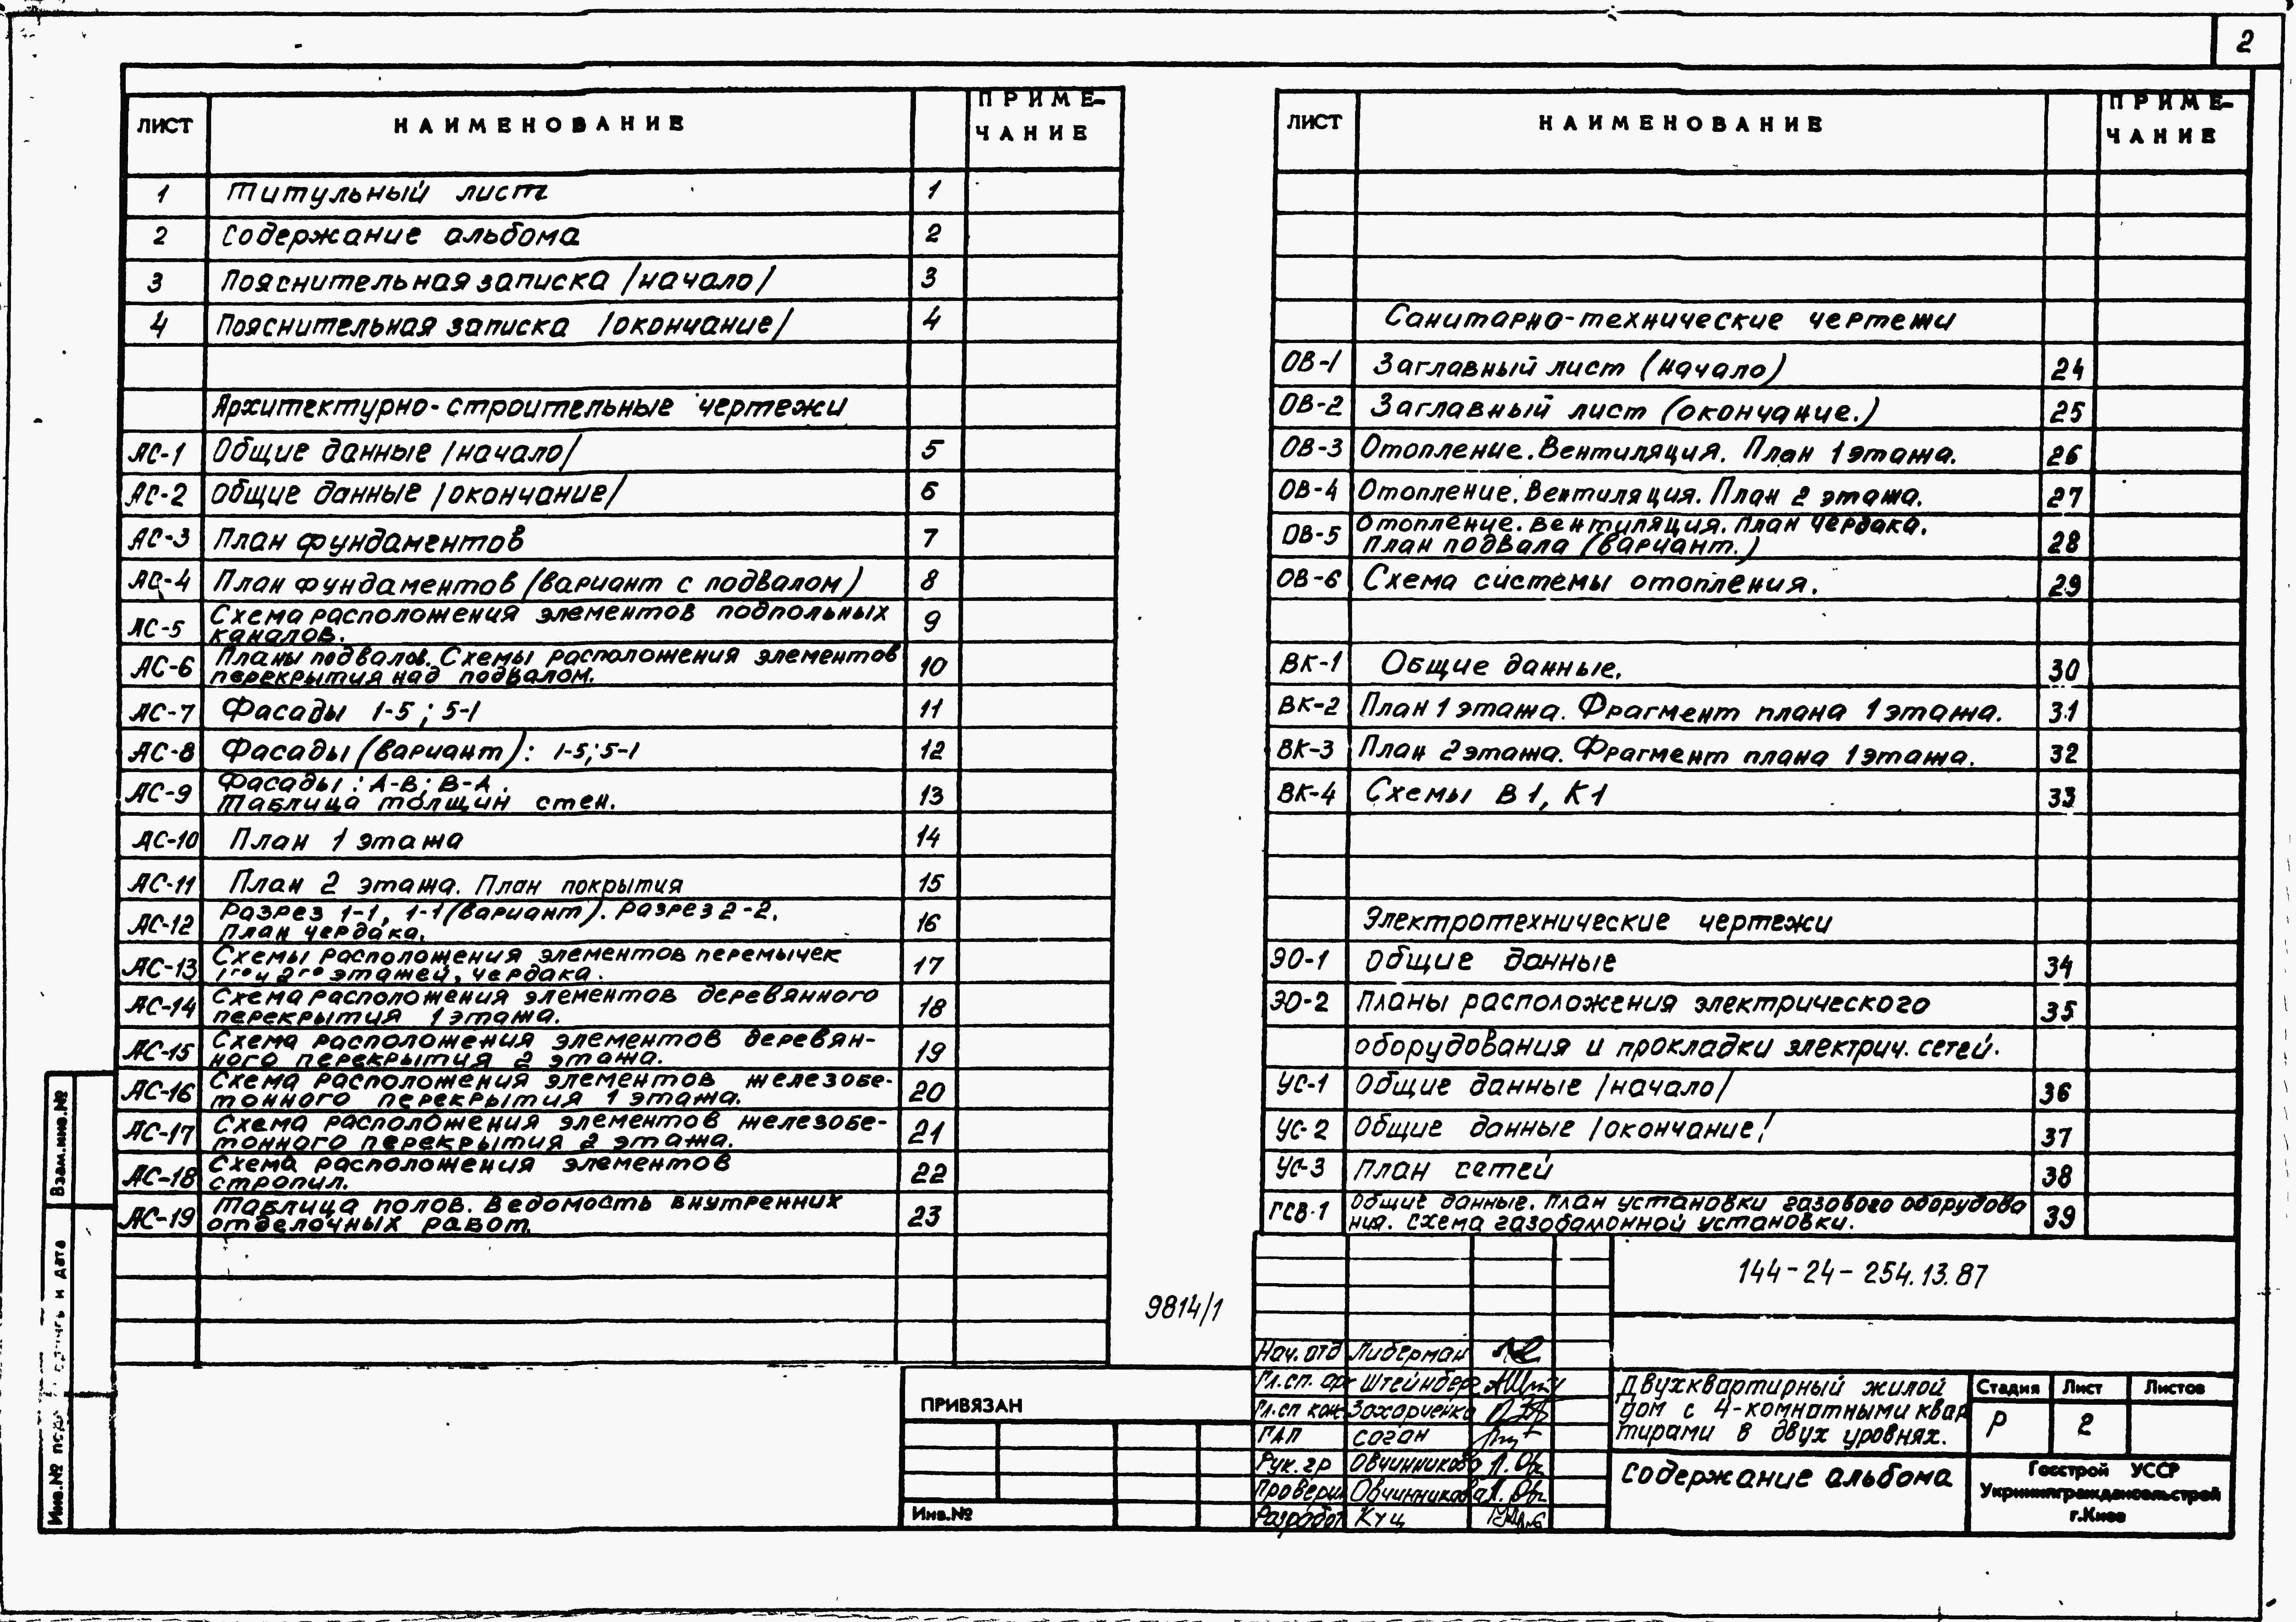 2
ЛИСТ НАИМЕНОВАНИЕ ПРИМЕ-
ЧАНИЕ
1 Титульный лист 1
2 Содержание альбома 2
3 Пояснительная записка /начало/ 3
4 Пояснительная записка /окончание/ 4
Архитектурно-строительные чертежи
АС-1 Общие данные /начало/ 5
АС-2 Общие данные /окончание/ 6
АС-3 План фундаментов 7
АС-4 План фундаментов (вариант с подвалом) 8
АС-5 Схема расположения элементов подпольных 9
каналов.
АС-6 Планы подвалов. Схемы расположения элементов 10
перекрытия над подвалом.
АС-7 Фасады 1-5; 5-1 11
АС-8 Фасады (вариант): 1-5; 5-1 12
АС-9 Фасады: А-В; В-А. 13
Таблица толщин стен.
АС-10 План 1 этажа 14
АС-11 План 2 этажа. План покрытия 15
АС-12 Разрез 1-1, 1-1 (вариант). Разрез 2-2. 16
План чердака.
АС-13 Схемы расположения элементов перемычек 17
1го и 2го этажей, чердака.
АС-14 Схема расположения элементов деревянного 18
перекрытия 1 этажа.
АС-15 Схема расположения элементов деревян- 19
ного перекрытия 2 этажа.
АС-16 Схема расположения элементов железобе- 20
тонного перекрытия 1 этажа.
АС-17 Схема расположения элементов железобе- 21
тонного перекрытия 2 этажа.
АС-18 Схема расположения элементов 22
стропил.
АС-19 Таблица полов. Ведомость внутренних 23
отделочных работ.
ЛИСТ НАИМЕНОВАНИЕ ПРИМЕ-
ЧАНИЕ
Санитарно-технические чертежи
ОВ-1 Заглавный лист (начало) 24
ОВ-2 Заглавный лист (окончание.) 25
ОВ-3 Отопление. Вентиляция. План 1 этажа. 26
ОВ-4 Отопление. Вентиляция. План 2 этажа. 27
ОВ-5 Отопление. Вентиляция. План чердака. 28
План подвала (вариант.)
ОВ-6 Схема системы отопления. 29
ВК-1 Общие данные. 30
ВК-2 План 1 этажа. Фрагмент плана 1 этажа. 31
ВК-3 План 2 этажа. Фрагмент плана 1 этажа. 32
ВК-4 Схемы В1, К1 33
Электротехнические чертежи
ЭО-1 Общие данные 34
ЭО-2 Планы расположения электрического 35
оборудования и прокладки электрич. сетей.
УС-1 Общие данные /начало/ 36
УС-2 Общие данные /окончание/ 37
УС-3 План сетей 38
ГСВ-1 Общие данные. План установки газового оборудова 39
ния. Схема газобалонной установки.
9814/1
144-24-254.13.87
Нач. отд Либерман
Гл. сп. арх Штейнберг
Гл. сп кон Захариенко
ГАП Саган
Рук. гр Овчинникова
Проверил Овчинникова
Разработ Кущ
Двухквартирный жилой
дом с 4-комнатными квар
тирами в двух уровнях.
Стадия Лист Листов
Р 2
Содержание альбома
Госстрой УССР
Укрниипграждансельстрой
г.Киев
ПРИВЯЗАН
Инв.№
Взам.инв.№
и дата
Инв.№ подл